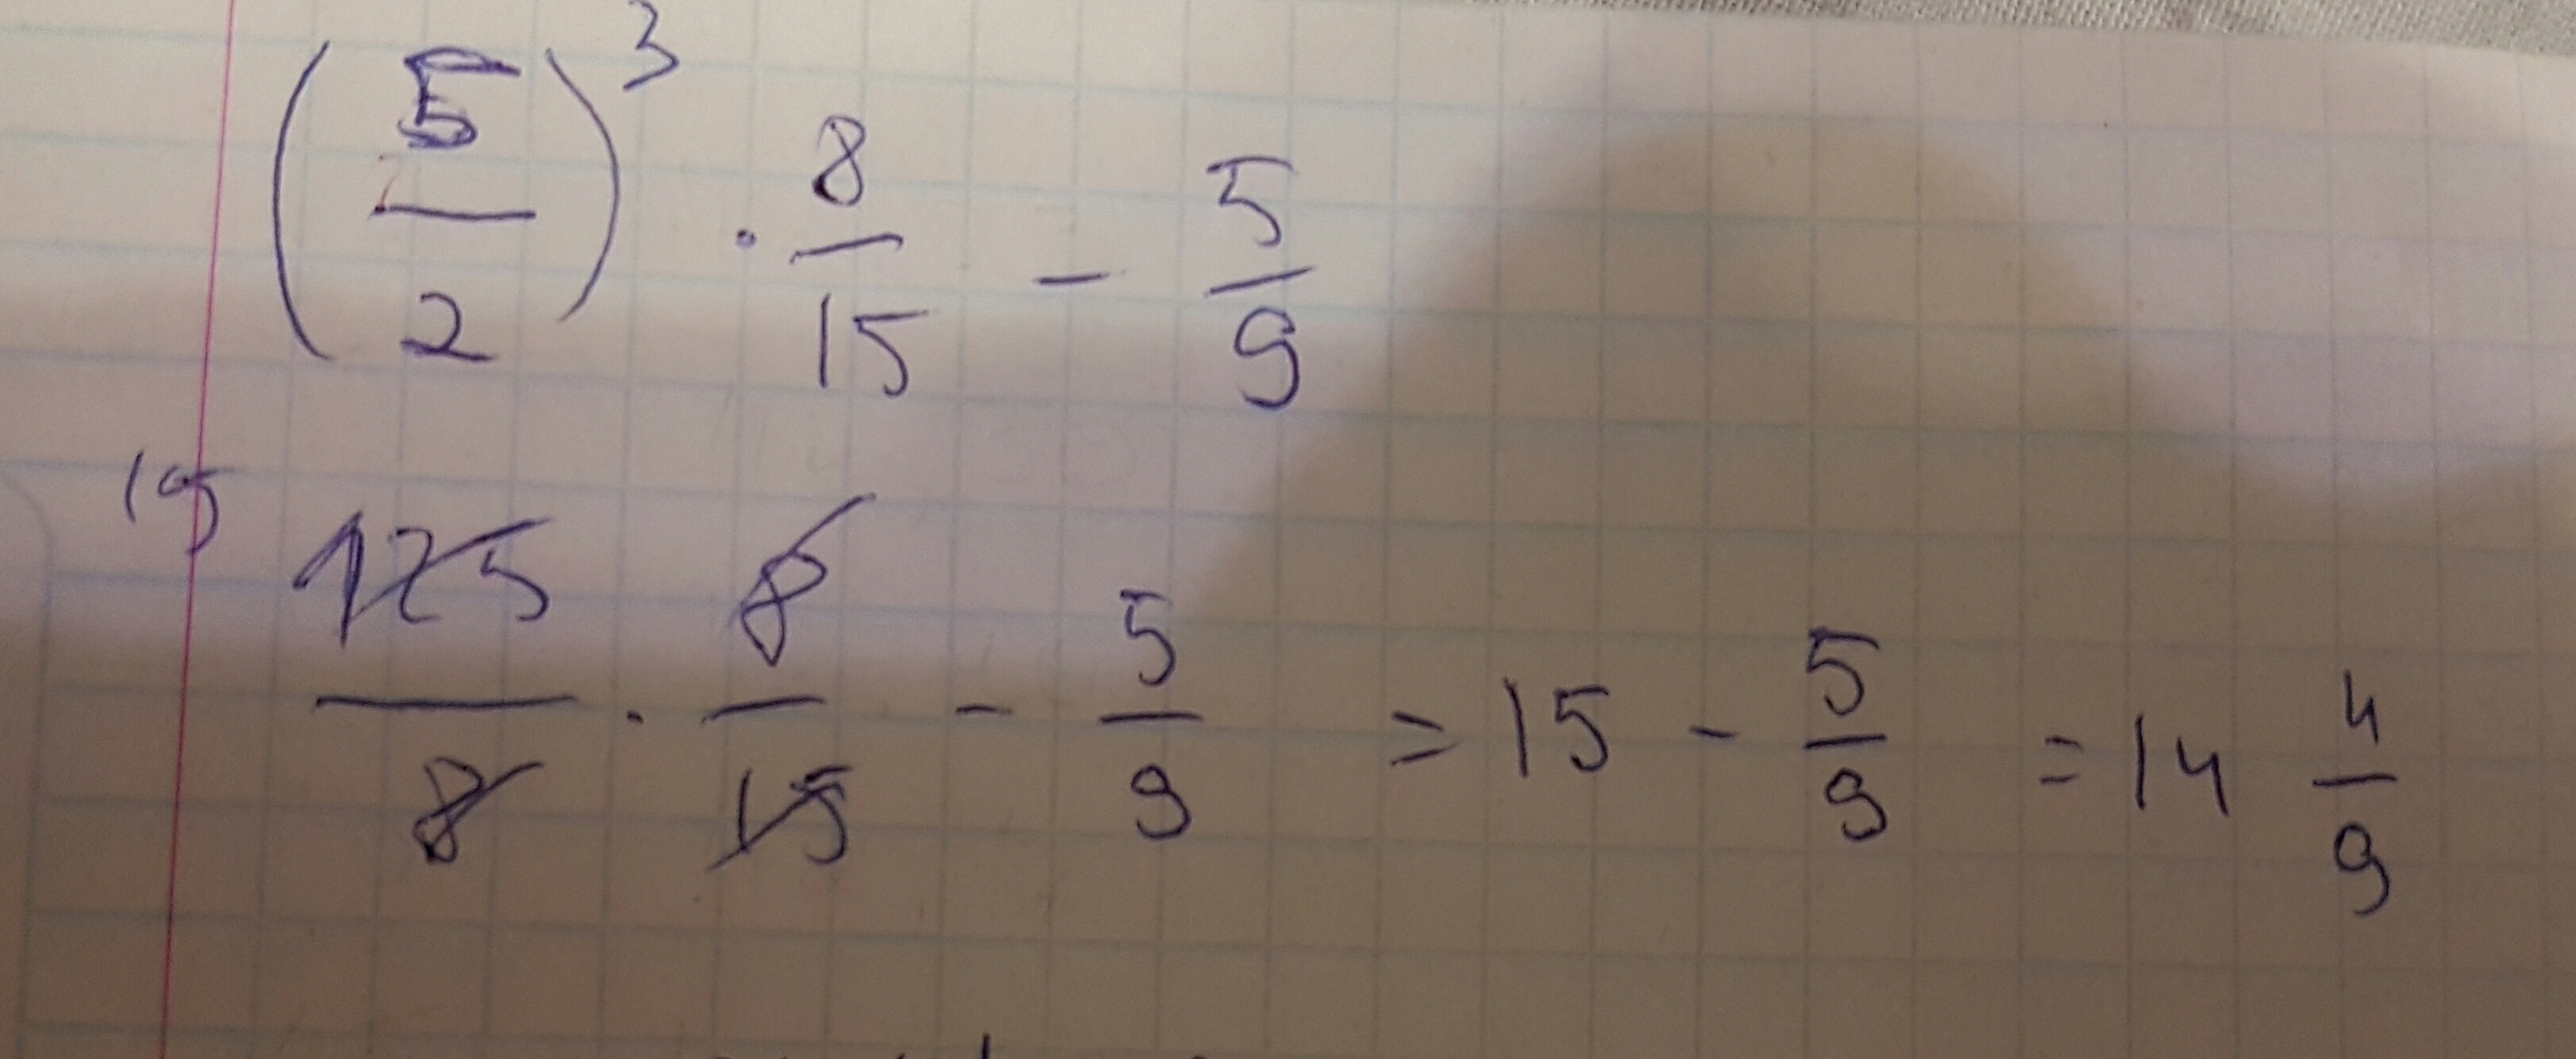 (5/2)³ · 8/15 - 5/9
15
125/8 · 8/15 - 5/9 = 15 - 5/9 = 14 4/9